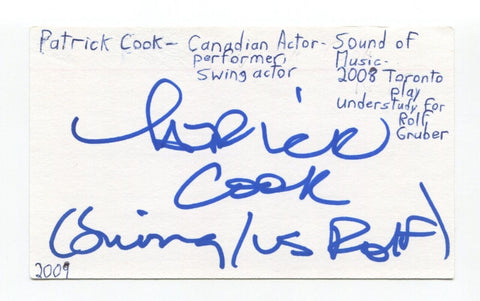 Patrick Cook- Canadian Actor-
performer,
Swing actor
Sound of
Music-
2008 Toronto
play
understudy for
Rolf
Gruber
Patrick
Cook
(Swing/us Rolf)
2009